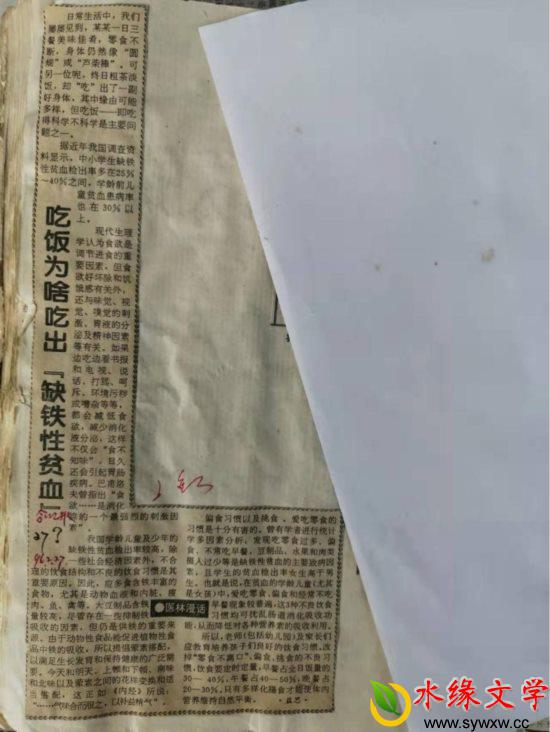 日常生活中，我们
屡屡见到，某某一日三
餐美味佳肴，零食不
断，身体仍然像“圆
规”或“芦柴棒”。可
另一位呢，终日粗茶淡
饭，却“吃”出了一副
好身体。其中缘由可能
多样，但吃饭——即吃
得科学不科学是主要问
题之一。
据近年我国调查资
料显示，中小学生缺铁
性贫血检出率多在25%
～40%之间，学龄前儿
童贫血患病率
也在30%以
上。
吃饭为啥吃出「缺铁性贫血」
现代生理
学认为食欲是
调节进食的重
要因素。但食
欲好坏除和饥
饿感有关外，
还与味觉、视
觉、嗅觉的刺
激、胃液的分
泌及精神因素
等有关。如果
边吃边看书报
和电视、说
话、打骂、呵
斥、环境污秽
或嘈杂等等，
都会减低食
欲，减少消化
液分泌，这样
不仅会“食不
知味”，日久
还会引起胃肠
疾病。巴甫洛
夫曾指出“食
欲……是消化
的一个最强烈的刺激因
素”。
我国学龄儿童及少年的
缺铁性贫血检出率较高，除
一些社会经济因素外，不合
理的饮食结构和不良的饮食习惯是其
重要原因。因此，应多食含铁丰富的
食物，尤其是动物血液和内脏、瘦
肉、鱼、禽等。大豆制品含铁
量较高，尽管存在一些抑制铁
吸收的因素，但仍是供铁的重要来
源。由于动物性食品能促进植物性食
品中铁的吸收，所以提倡荤素搭配，
以满足生长发育和保持健康的广泛需
要。今天和明天，上顿和下顿，副味
和主味以及荤素之间的花样变换和适
当搭配，这正如《内经》所说：
“……气味合而服之，以补益精气”。
●医林漫话
偏食习惯以及挑食、爱吃零食的
习惯是十分有害的。曾有学者进行统计
学多因素分析，发现吃零食过多、偏
食、不常吃早餐、豆制品、水果和肉类
摄入过少等是缺铁性贫血的主要致病因
素，且学生的贫血检出率女生高于男
生。也就是说，在贫血的学龄儿童(尤其
是女孩)中，爱吃零食、偏食和经常不吃
早餐现象较普遍，这3种不良饮食
习惯均可扰乱肠道消化吸收功
能，从而降低对各种营养素的吸收利用。
所以，老师(包括幼儿园)及家长们
应教育培养孩子们良好的饮食习惯，改
掉“零食不离口”、偏食、挑食的不良习
惯，饮食要定时定量，早餐占全日饭量的
30—40%，午餐占40—50%，晚餐占
20—30%，只有多样化膳食才能使体内
营养维持自然平衡。
水缘文学
www.sywxw.cc